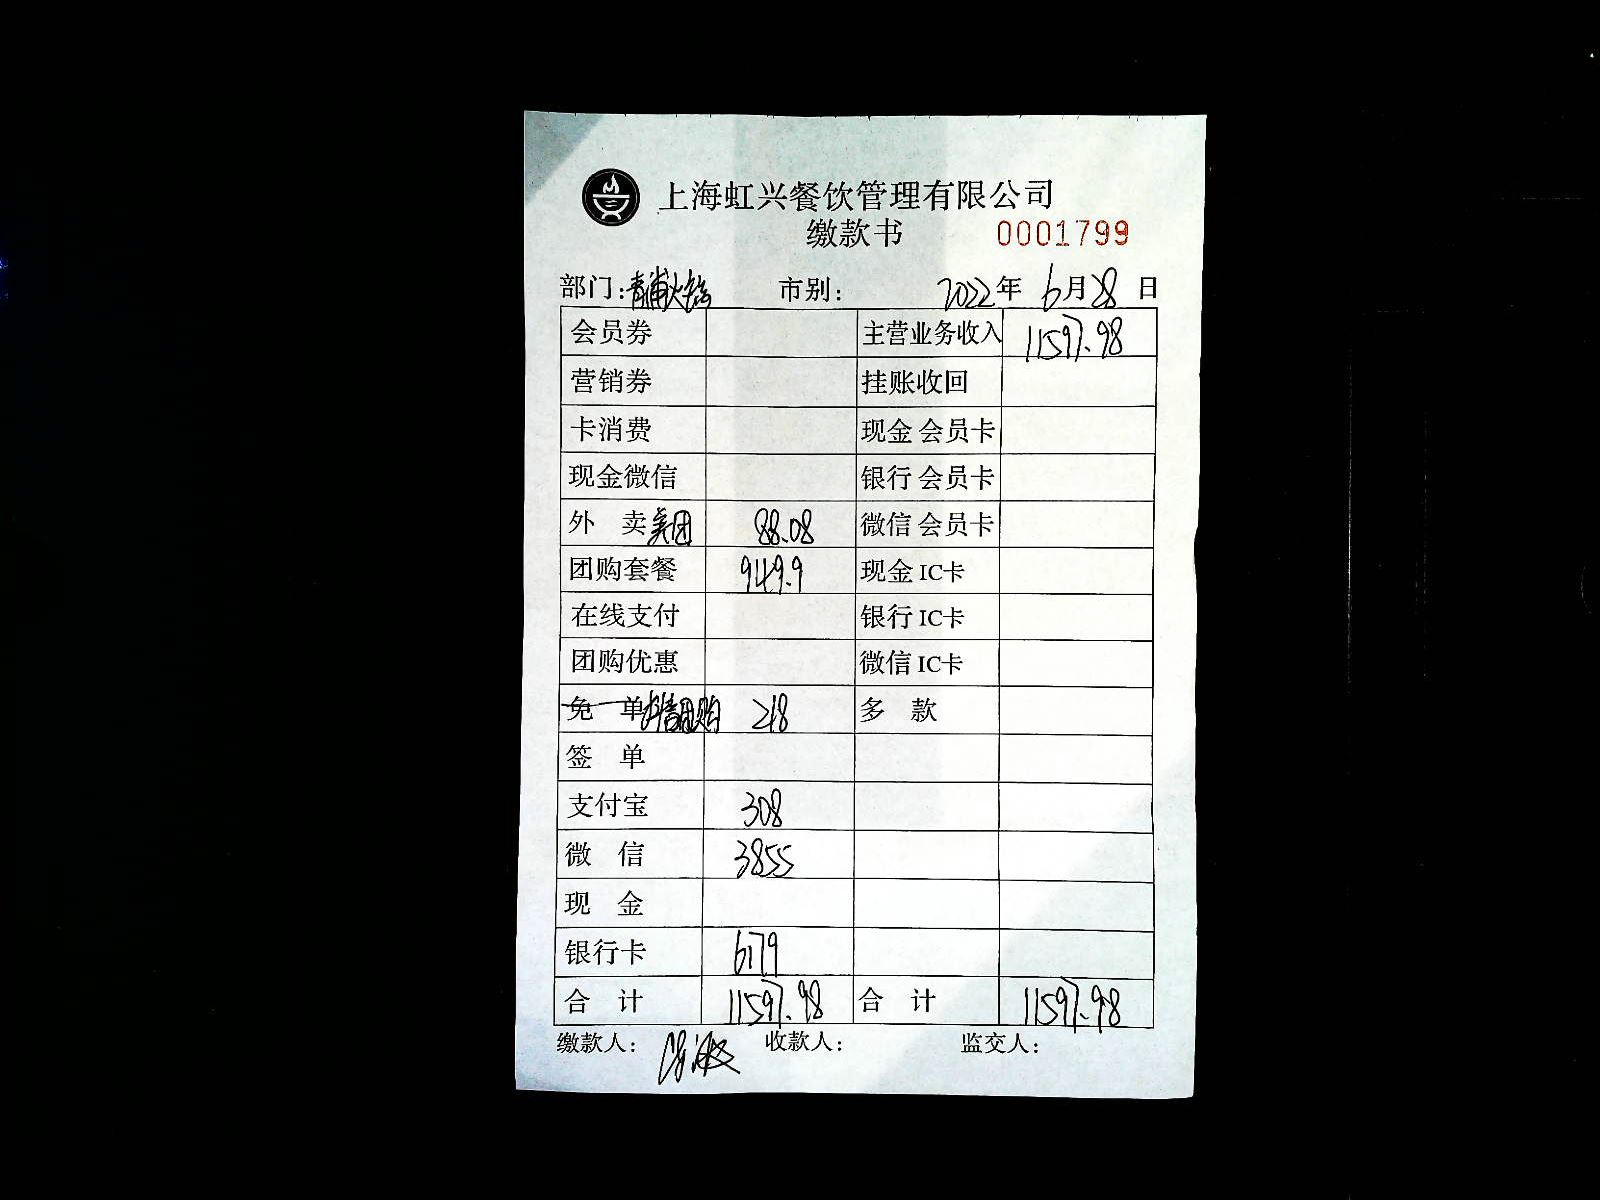 上海虹兴餐饮管理有限公司
缴款书 0001799
部门:青浦火锅 市别: 2022年 6月28日
会员券 主营业务收入 11597.98
营销券 挂账收回
卡消费 现金 会员卡
现金微信 银行 会员卡
外 卖 美团 88.08 微信 会员卡
团购套餐 949.9 现金 IC卡
在线支付 银行 IC卡
团购优惠 微信 IC卡
免 单 抖音团购 218 多 款
签 单
支付宝 308
微 信 3855
现 金
银行卡 6179
合 计 11597.98 合 计 11597.98
缴款人: 收款人: 监交人: